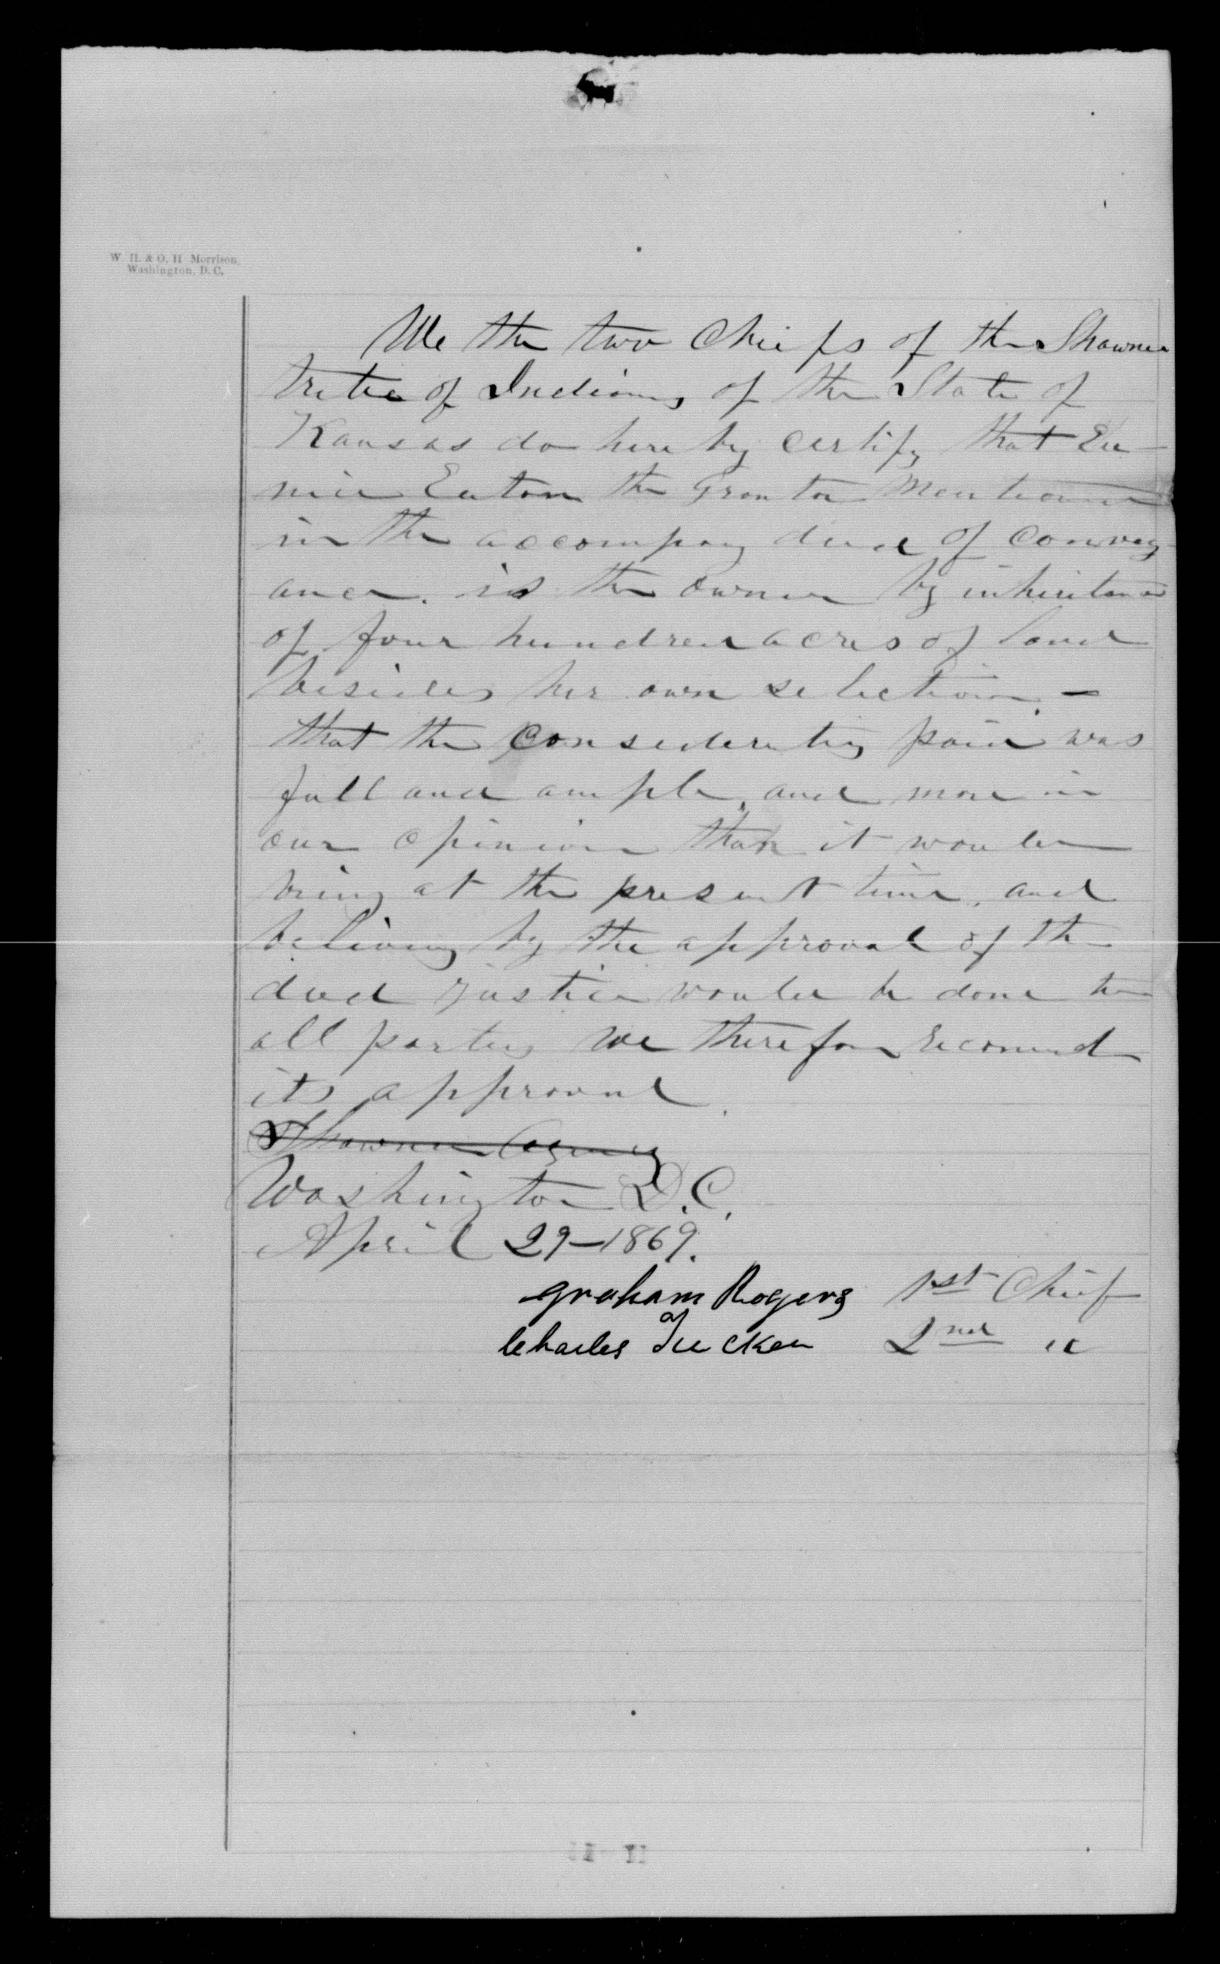 W. H. & O. H Morrison,
Washington, D. C.
We the two Chiefs of the Shawnee
tribe of Indians of the State of
Kansas do here by certify that Eu-
nice Eaton the Grantor Mentioned
in the accompany deed of convey-
ance. is the owner by inheritance
of four hundred acres of land
besides her own selection. -
that the consideration paid was
full and ample, and more in
our opinion than it would
bring at the present time, and
believing by the approval of the
deed justice would be done to
all parties we therefore recomend
its approval
Shawnee Agency
Washington D.C.
April 29-1869.
Graham Rogers 1st Chief
Charles Tucker 2nd "